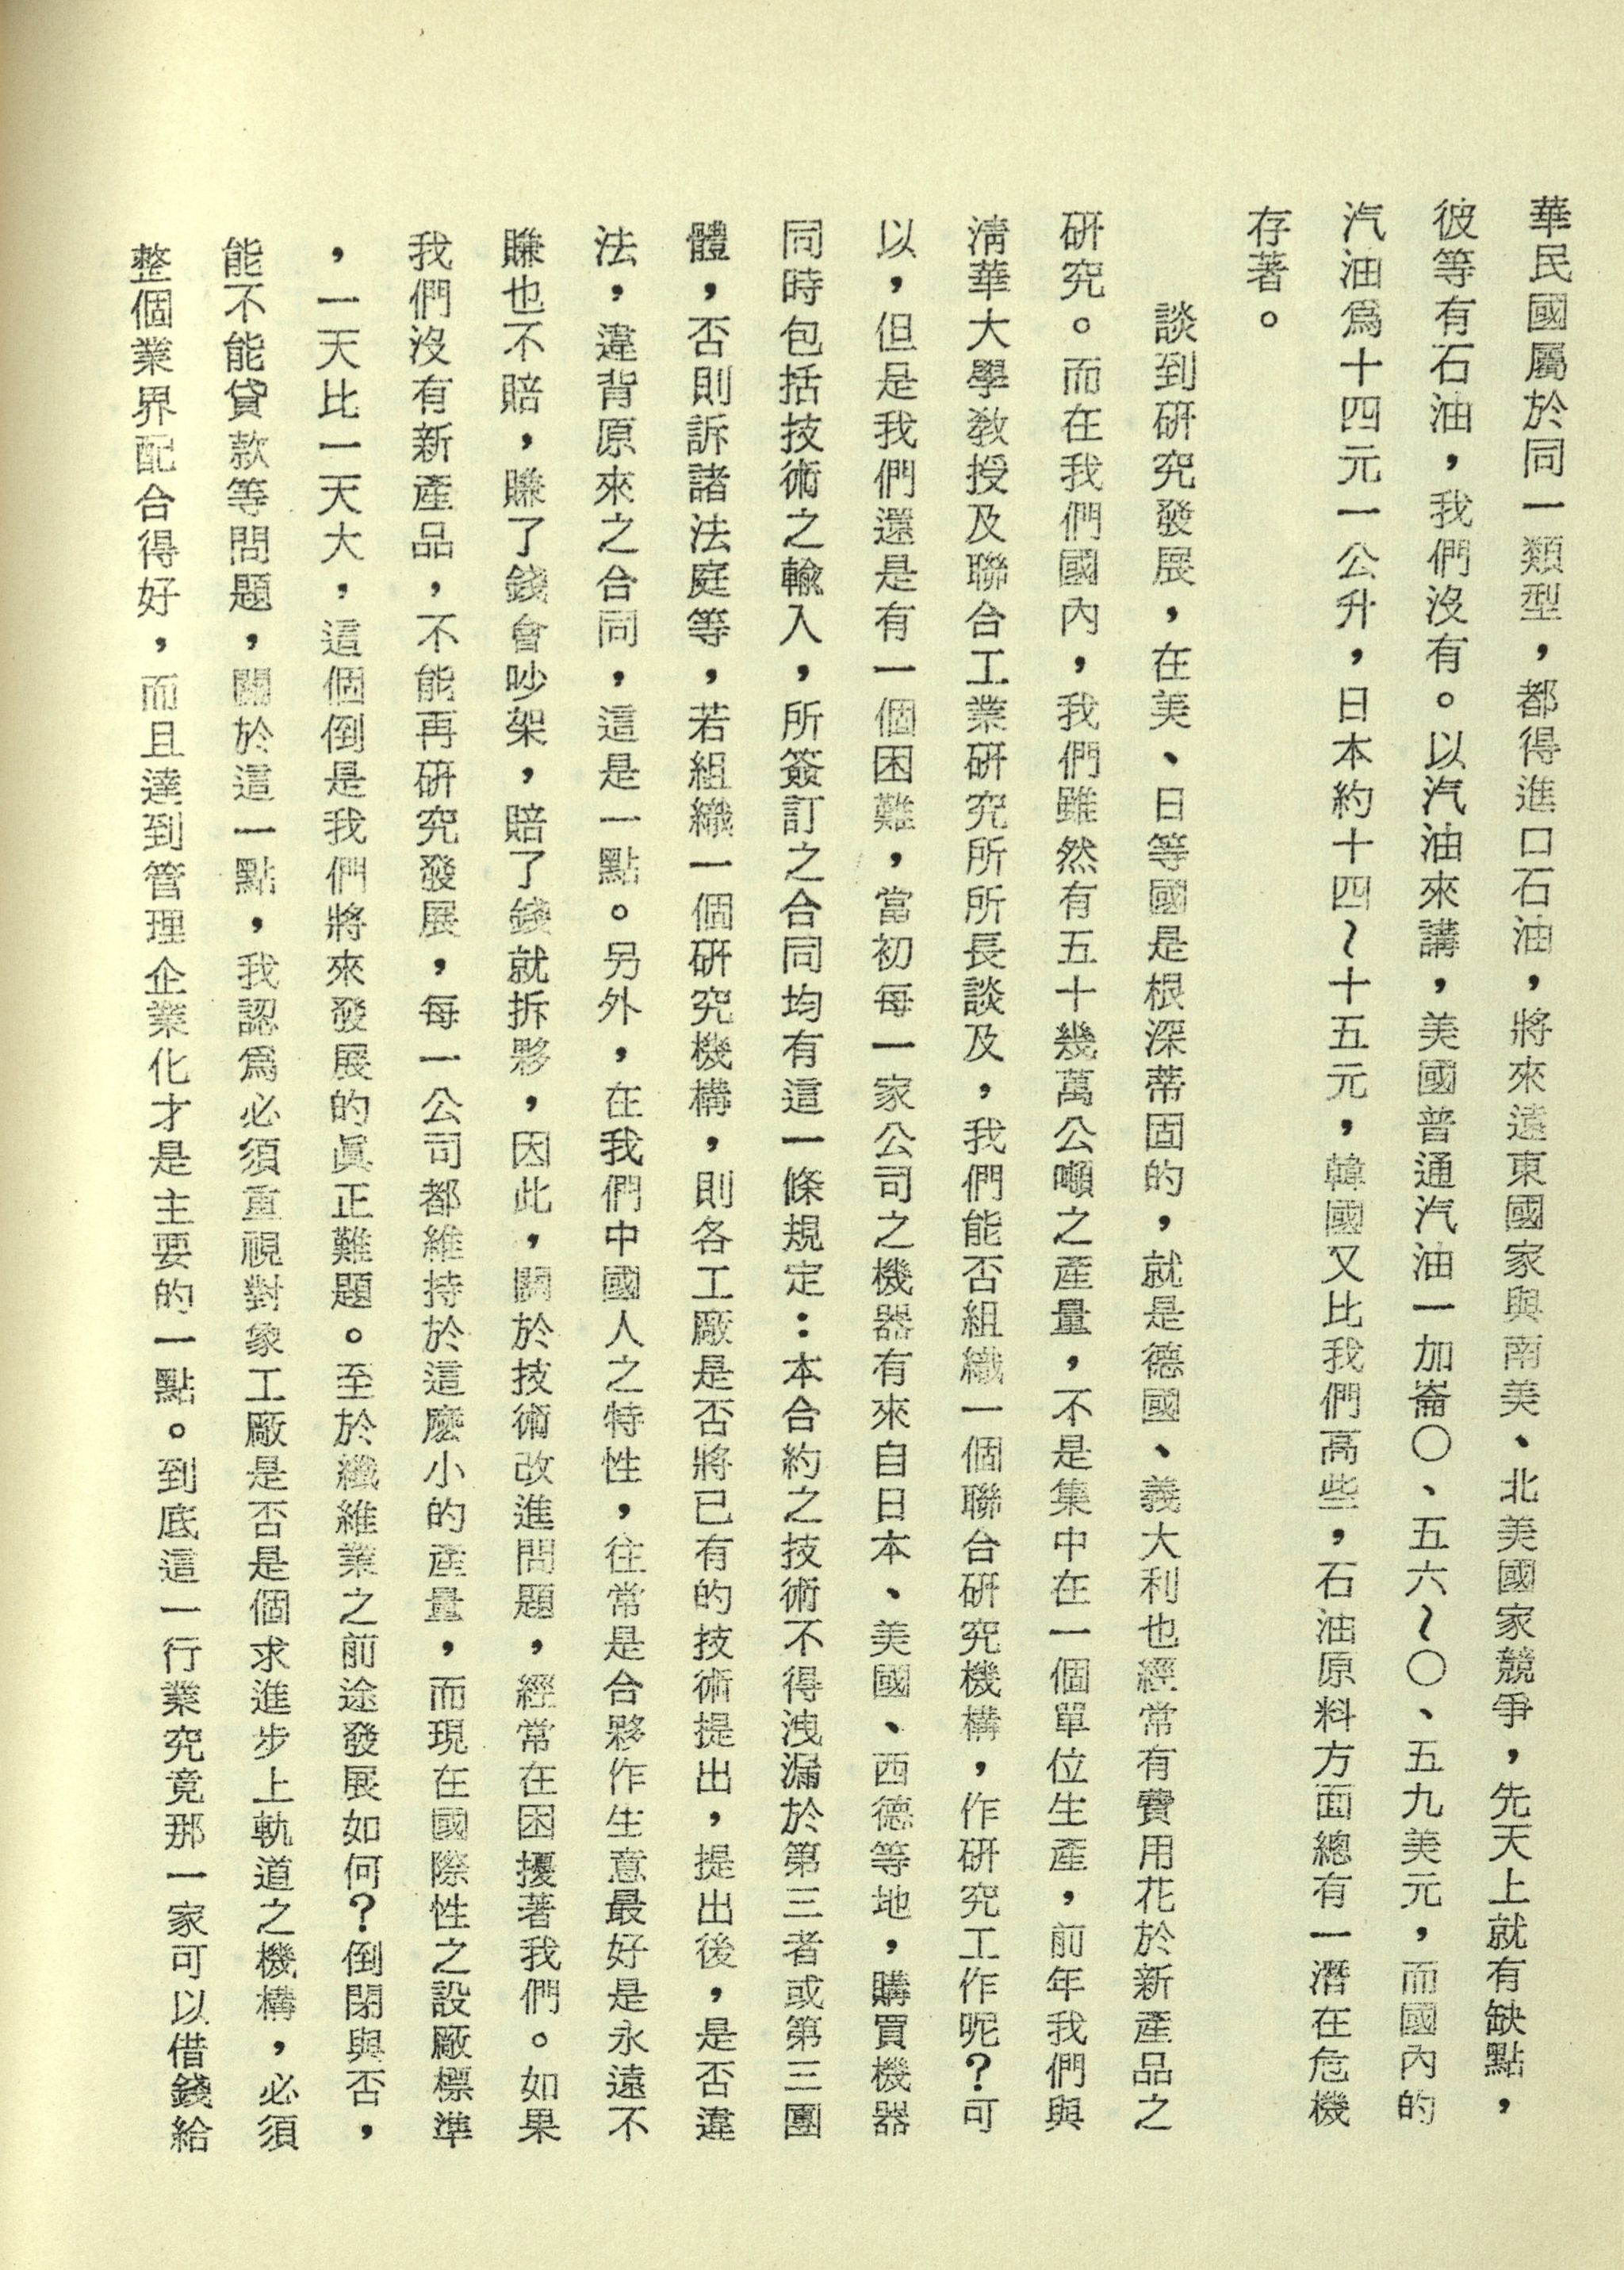 華民國屬於同一類型，都得進口石油，將來遠東國家與南美、北美國家競爭，先天上就有缺點，
彼等有石油，我們沒有。以汽油來講，美國普通汽油一加崙〇、五六～〇、五九美元，而國內的
汽油爲十四元一公升，日本約十四～十五元，韓國又比我們高些，石油原料方面總有一潛在危機
存著。
談到研究發展，在美、日等國是根深蒂固的，就是德國、義大利也經常有費用花於新產品之
研究。而在我們國內，我們雖然有五十幾萬公噸之產量，不是集中在一個單位生產，前年我們與
清華大學教授及聯合工業研究所所長談及，我們能否組織一個聯台研究機構，作研究工作呢？可
以，但是我們還是有一個困難，當初每一家公司之機器有來自日本、美國、西德等地，購買機器
同時包括技術之輸入，所簽訂之合同均有這一條規定：本合約之技術不得洩漏於第三者或第三團
體，否則訴諸法庭等，若組織一個研究機構，則各工廠是否將已有的技術提出，提出後，是否違
法，違背原來之合同，這是一點。另外，在我們中國人之特性，往常是合夥作生意最好是永遠不
賺也不賠，賺了錢會吵架，賠了錢就拆夥，因此，關於技術改進問題，經常在困擾著我們。如果
我們沒有新產品，不能再研究發展，每一公司都維持於這麼小的產量，而現在國際性之設廠標準
，一天比一天大，這個倒是我們將來發展的眞正難題。至於纖維業之前途發展如何？倒閉與否，
能不能貸款等問題，關於這一點，我認爲必須重視對象工廠是否是個求進步上軌道之機構，必須
整個業界配合得好，而且達到管理企業化才是主要的一點。到底這一行業究竟那一家可以借錢給